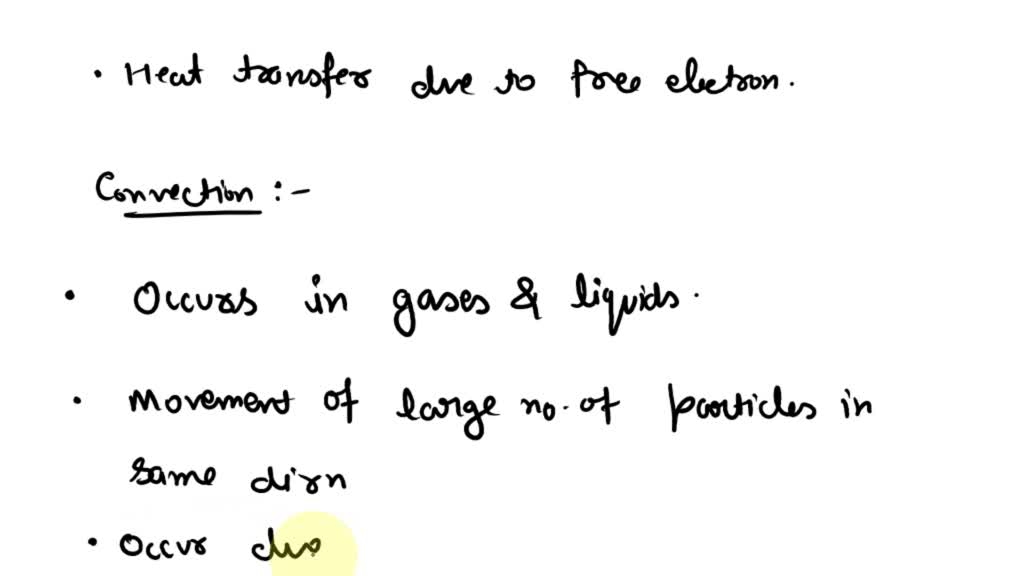 • Heat transfer due to free electron.
Convection :-
• Occurs in gases & liquids.
• Movement of large no. of particles in
same dirn
• Occur due